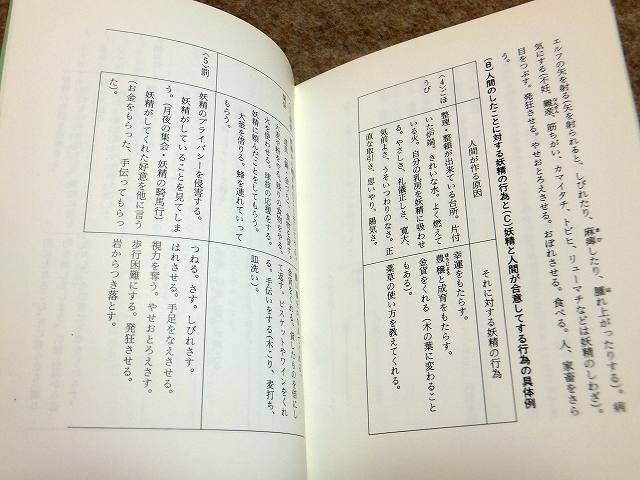 エルフの矢を射る(矢を射られると、しびれたり、麻痺したり、腫れ上がったりする)。病
気にする(不妊、難産、筋ちがい、カマイタチ、トビヒ、リューマチなどは妖精のしわざ)。
目をつぶす。発狂させる。やせおとろえさせる。おぼれさせる。食べる。人、家畜をさら
う。
(B)人間のしたことに対する妖精の行為と(C)妖精と人間が合意してする行為の具体例
人間が作る原因
それに対する妖精の行為
〈4〉ごほ
うび
整理・整頓が出来ている台所。片付
いた炉端。きれいな水。よく燃えて
いる火。自分の乳房を妖精に吸わせ
る。やさしさ、礼儀正しさ、寛大、
気前よさ、うそいつわりのなさ。正
直な取引き、思いやり、陽気さ。
幸運をもたらす。
豊穣と成育をもたらす。
金貨をくれる(木の葉に変わること
もある)。
薬草の使い方を教えてくれる。
火を使わせる。球技の応援をする。
妖精に飲んだことをしてもらう。
大釜を借りる。蜂を連れていって
もらう。
て返す。ビスケットやワインをくれ
る。手伝いをする(木こり、麦打ち、
皿洗い)。
〈5〉罰
妖精のプライバシーを侵害する。
妖精がしていることを見てしま
う。(月夜の集会・妖精の騎馬行)
妖精がしてくれた好意を他に言う
(お金をもらった、手伝ってもらっ
た)。
つねる。さす。しびれさす。
はれさせる。手足をなえさせる。
視力を奪う。やせおとろえさす。
歩行困難にする。発狂させる。
岩からつき落とす。